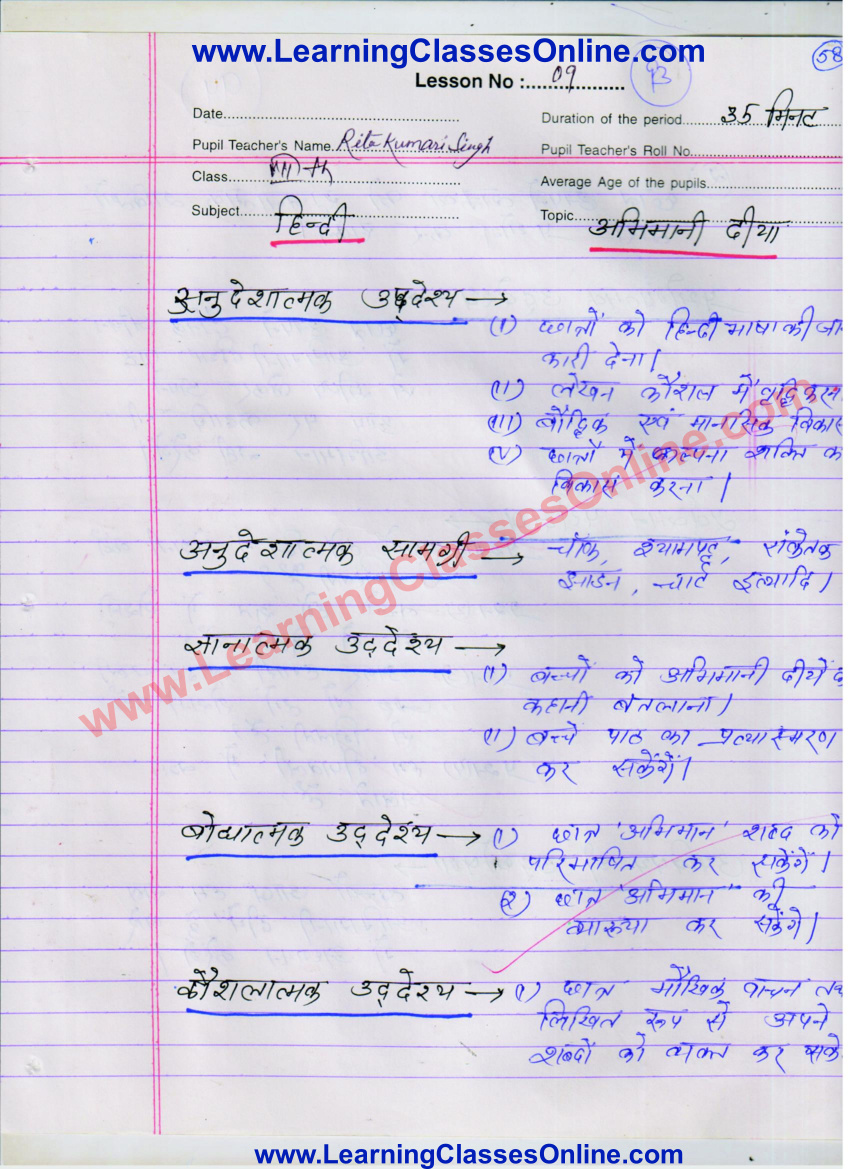 www.LearningClassesOnline.com
58
Lesson No :....09....
Date....
Duration of the period....35 मिनट
Pupil Teacher's Name. Rita Kumari Singh
Pupil Teacher's Roll No....
Class....VIIth
Average Age of the pupils....
Subject....हिन्दी
Topic....अभिमानी दीया
अनुदेशात्मक उद्देश्य →
(i) छात्रों को हिन्दी भाषा की जा
कारी देना।
(ii) लेखन कौशल में वृद्धि करन
(iii) बौद्धिक एवं मानसिक विकास
(iv) छात्रों में कल्पना शक्ति क
विकास करना।
अनुदेशात्मक सामग्री → चॉक, श्यामपट्ट, संकेतक
झाडन, चार्ट इत्यादि।
ज्ञानात्मक उद्देश्य →
(i) बच्चों को अभिमानी दीये द
कहानी बतलाना।
(ii) बच्चे पाठ का प्रत्यास्मरण
कर सकेंगें।
बोधात्मक उद्देश्य → (i) छात्र 'अभिमान' शब्द को
परिभाषित कर सकेंगें।
(२) छात्र 'अभिमान' की
व्याख्या कर सकेंगे।
कौशलात्मक उद्देश्य → (i) छात्र मौखिक वाचन तथ
लिखित रूप से अपने
शब्दों को व्यक्त कर सके
www.LearningClassesOnline.com
www.LearningClassesOnline.com